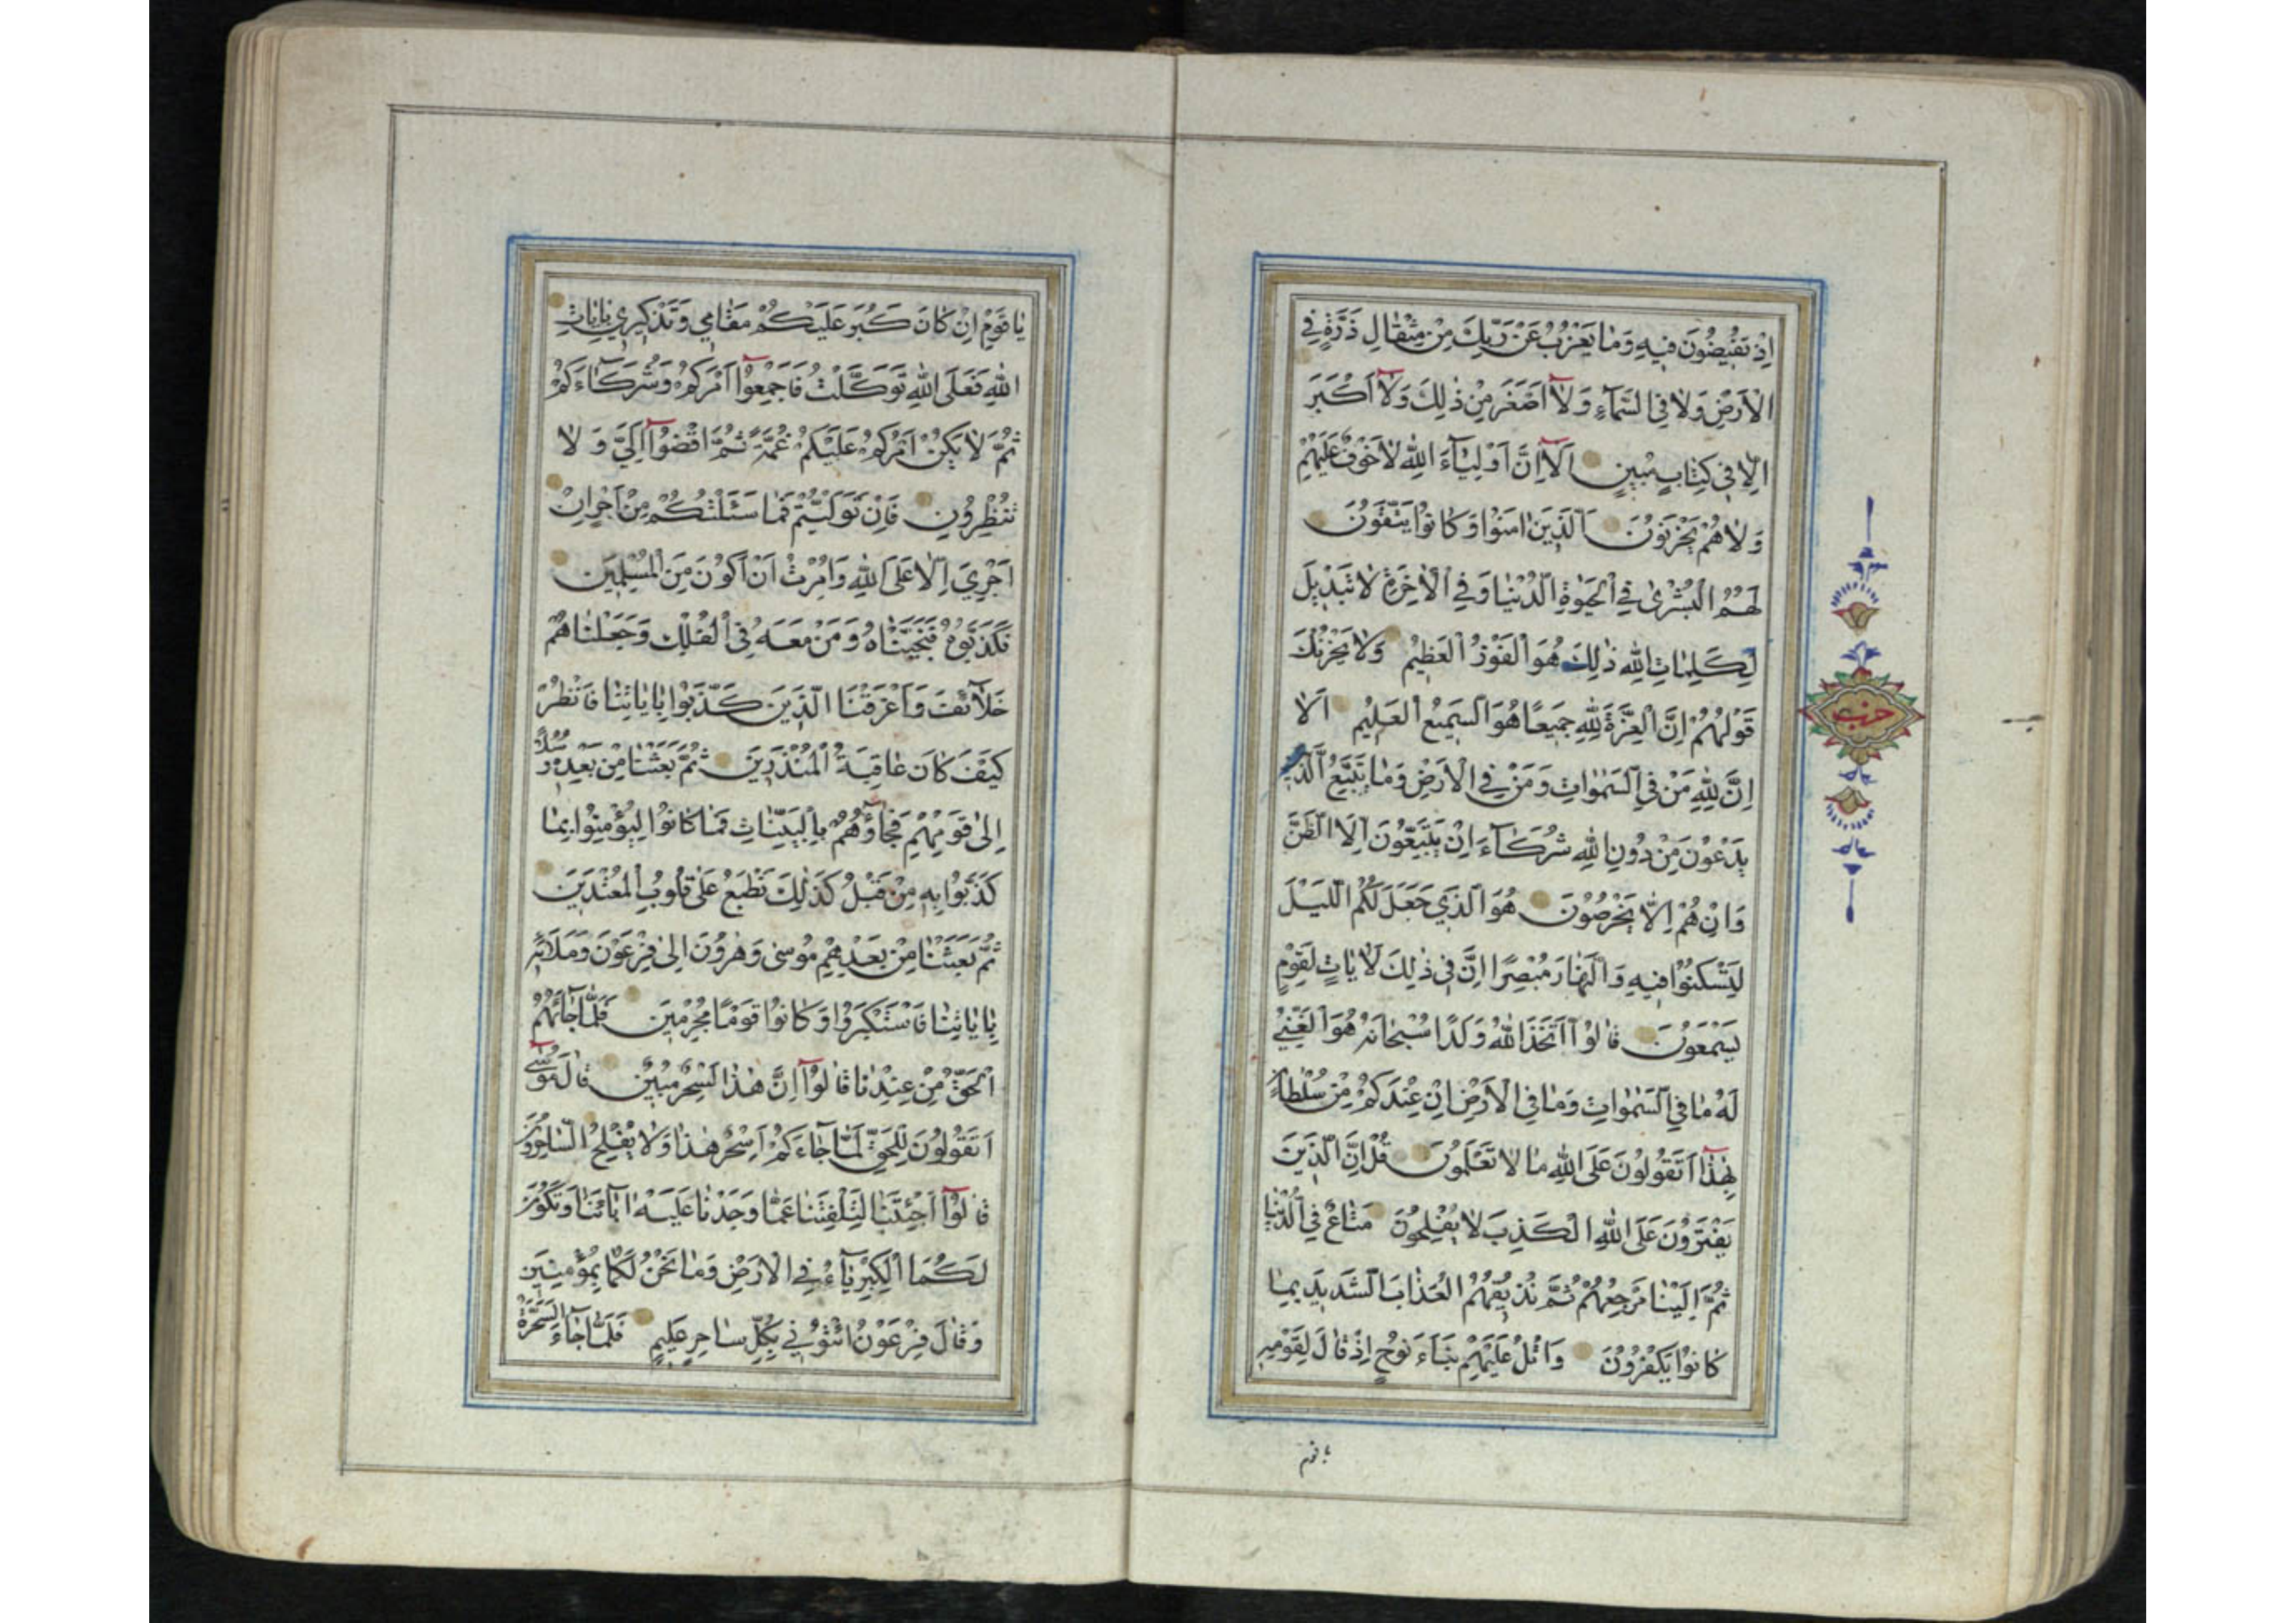 اِذْ تُفيضُونَ فيهِ وَمَا يَعْزُبُ عَنْ رَبِّكَ مِنْ مِثْقَالِ ذَرَّةٍ فِي
الْاَرْضِ وَلَا فِي السَّمَآءِ وَلَآ اَصْغَرَ مِنْ ذٰلِكَ وَلَآ اَكْبَرَ
اِلَّا فِي كِتَابٍ مُبِينٍ اَلَآ اِنَّ اَوْلِيَآءَ اللّٰهِ لَا خَوْفٌ عَلَيْهِمْ
وَلَا هُمْ يَحْزَنُونَ اَلَّذِينَ اٰمَنُوا وَكَانُوا يَتَّقُونَ
لَهُمُ الْبُشْرٰى فِي الْحَيٰوةِ الدُّنْيَا وَفِي الْاٰخِرَةِ لَا تَبْدِيلَ
لِكَلِمَاتِ اللّٰهِ ذٰلِكَ هُوَ الْفَوْزُ الْعَظِيمُ وَلَا يَحْزُنْكَ
قَوْلُهُمْ اِنَّ الْعِزَّةَ لِلّٰهِ جَمِيعًا هُوَ السَّمِيعُ الْعَلِيمُ اَلَا
اِنَّ لِلّٰهِ مَنْ فِي السَّمٰوَاتِ وَمَنْ فِي الْاَرْضِ وَمَا يَتَّبِعُ الَّذِينَ
يَدْعُونَ مِنْ دُونِ اللّٰهِ شُرَكَآءَ اِنْ يَتَّبِعُونَ اِلَّا الظَّنَّ
وَاِنْ هُمْ اِلَّا يَخْرُصُونَ هُوَ الَّذِي جَعَلَ لَكُمُ اللَّيْلَ
لِتَسْكُنُوا فِيهِ وَالنَّهَارَ مُبْصِرًا اِنَّ فِي ذٰلِكَ لَاٰيَاتٍ لِقَوْمٍ
يَسْمَعُونَ قَالُوا اتَّخَذَ اللّٰهُ وَلَدًا سُبْحَانَهُ هُوَ الْغَنِيُّ
لَهُ مَا فِي السَّمٰوَاتِ وَمَا فِي الْاَرْضِ اِنْ عِنْدَكُمْ مِنْ سُلْطَانٍ
بِهٰذَآ اَتَقُولُونَ عَلَى اللّٰهِ مَا لَا تَعْلَمُونَ قُلْ اِنَّ الَّذِينَ
يَفْتَرُونَ عَلَى اللّٰهِ الْكَذِبَ لَا يُفْلِحُونَ مَتَاعٌ فِي الدُّنْيَا
ثُمَّ اِلَيْنَا مَرْجِعُهُمْ ثُمَّ نُذِيقُهُمُ الْعَذَابَ الشَّدِيدَ بِمَا
كَانُوا يَكْفُرُونَ وَاتْلُ عَلَيْهِمْ نَبَاَ نُوحٍ اِذْ قَالَ لِقَوْمِهِ
حزب
يَا قَوْمِ اِنْ كَانَ كَبُرَ عَلَيْكُمْ مَقَامِي وَتَذْكِيرِي بِاٰيَاتِ
اللّٰهِ فَعَلَى اللّٰهِ تَوَكَّلْتُ فَاَجْمِعُوآ اَمْرَكُمْ وَشُرَكَآءَكُمْ
ثُمَّ لَا يَكُنْ اَمْرُكُمْ عَلَيْكُمْ غُمَّةً ثُمَّ اقْضُوآ اِلَيَّ وَلَا
تُنْظِرُونِ فَاِنْ تَوَلَّيْتُمْ فَمَا سَئَلْتُكُمْ مِنْ اَجْرٍ اِنْ
اَجْرِيَ اِلَّا عَلَى اللّٰهِ وَاُمِرْتُ اَنْ اَكُونَ مِنَ الْمُسْلِمِينَ
فَكَذَّبُوهُ فَنَجَّيْنَاهُ وَمَنْ مَعَهُ فِي الْفُلْكِ وَجَعَلْنَاهُمْ
خَلَآئِفَ وَاَغْرَقْنَا الَّذِينَ كَذَّبُوا بِاٰيَاتِنَا فَانْظُرْ
كَيْفَ كَانَ عَاقِبَةُ الْمُنْذَرِينَ ثُمَّ بَعَثْنَا مِنْ بَعْدِهِ رُسُلًا
اِلٰى قَوْمِهِمْ فَجَآؤُهُمْ بِالْبَيِّنَاتِ فَمَا كَانُوا لِيُؤْمِنُوا بِمَا
كَذَّبُوا بِهِ مِنْ قَبْلُ كَذٰلِكَ نَطْبَعُ عَلٰى قُلُوبِ الْمُعْتَدِينَ
ثُمَّ بَعَثْنَا مِنْ بَعْدِهِمْ مُوسٰى وَهٰرُونَ اِلٰى فِرْعَوْنَ وَمَلَائِهِ
بِاٰيَاتِنَا فَاسْتَكْبَرُوا وَكَانُوا قَوْمًا مُجْرِمِينَ فَلَمَّا جَآئَهُمُ
الْحَقُّ مِنْ عِنْدِنَا قَالُوآ اِنَّ هٰذَا لَسِحْرٌ مُبِينٌ قَالَ مُوسٰى
اَتَقُولُونَ لِلْحَقِّ لَمَّا جَآءَكُمْ اَسِحْرٌ هٰذَا وَلَا يُفْلِحُ السَّاحِرُونَ
قَالُوآ اَجِئْتَنَا لِتَلْفِتَنَا عَمَّا وَجَدْنَا عَلَيْهِ اٰبَآئَنَا وَتَكُونَ
لَكُمَا الْكِبْرِيَآءُ فِي الْاَرْضِ وَمَا نَحْنُ لَكُمَا بِمُؤْمِنِينَ
وَقَالَ فِرْعَوْنُ ائْتُونِي بِكُلِّ سَاحِرٍ عَلِيمٍ فَلَمَّا جَآءَ السَّحَرَةُ